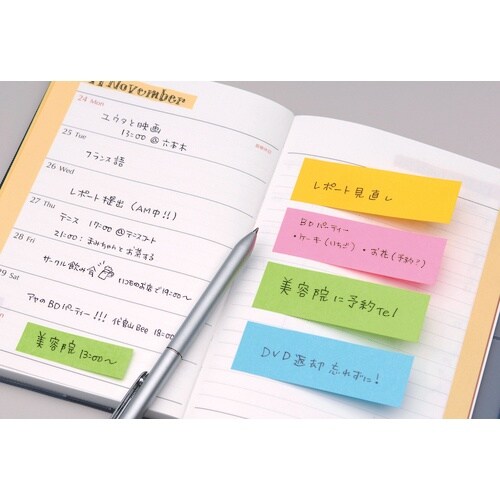 11 November
24 Mon
ユウマと映画
13:00 @ 六本木
25 Tue
フランス語
26 Wed
レポート提出 (AM中!!)
27 Thu
テニス 17:00 @テニスコート
21:00: まみちゃんとお茶する
28 Fri
サークル飲み会 いつものお店で19:00〜
29 Sat
アヤのBDパーティー!!! 代官山Bee 18:00
美容院 13:00〜
レポート見直し
BDパーティー
・ケーキ(いちご) ・お花(予約?)
美容院に予約Tel
DVD返却 忘れずに!